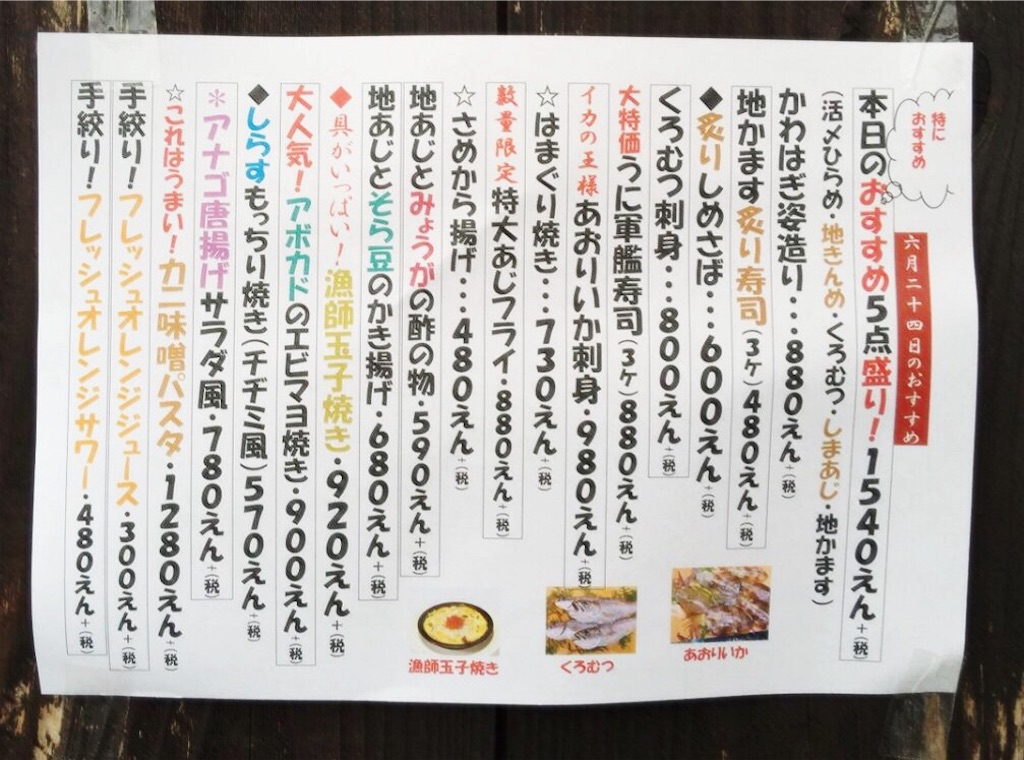 六月二十四日のおすすめ
特に
おすすめ
本日のおすすめ5点盛り！1540えん+(税)
(活〆ひらめ・地きんめ・くろむつ・しまあじ・地かます)
かわはぎ姿造り・・・880えん+(税)
地かます炙り寿司(3ヶ)480えん+(税)
◆炙りしめさば・・・600えん+(税)
くろむつ刺身・・・800えん+(税)
大特価うに軍艦寿司(3ヶ)880えん+(税)
イカの王様あおりいか刺身・980えん+(税)
☆はまぐり焼き・・・730えん+(税)
数量限定特大あじフライ・880えん+(税)
☆さめから揚げ・・・480えん+(税)
地あじとみょうがの酢の物・590えん+(税)
地あじとそら豆のかき揚げ・680えん+(税)
◆具がいっぱい！漁師玉子焼き・920えん+(税)
大人気！アボカドのエビマヨ焼き・900えん+(税)
◆しらすもっちり焼き(チヂミ風)570えん+(税)
＊アナゴ唐揚げサラダ風・780えん+(税)
☆これはうまい！カニ味噌パスタ・1280えん+(税)
手絞り！フレッシュオレンジジュース・300えん+(税)
手絞り！フレッシュオレンジサワー・480えん+(税)
あおりいか
くろむつ
漁師玉子焼き